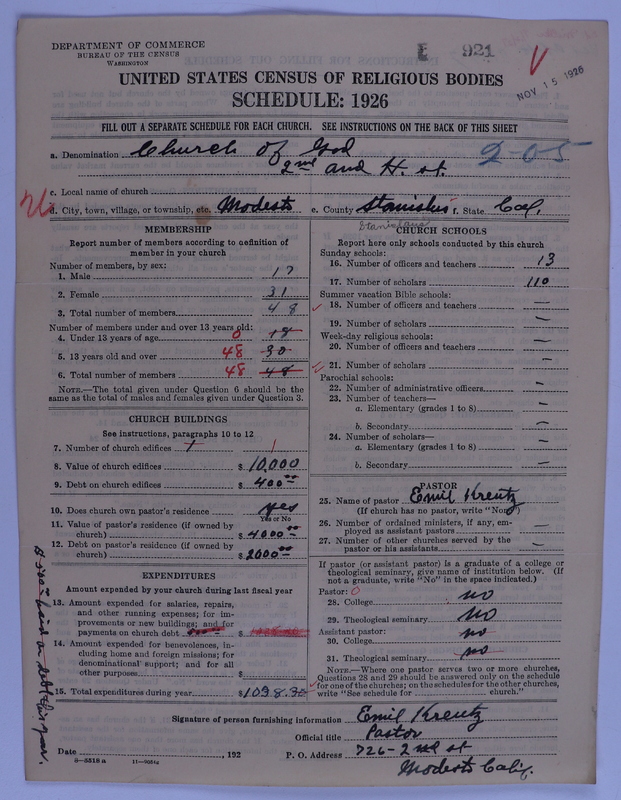 DEPARTMENT OF COMMERCE
BUREAU OF THE CENSUS
WASHINGTON
E 921
NOV 15 1926
UNITED STATES CENSUS OF RELIGIOUS BODIES
SCHEDULE: 1926
FILL OUT A SEPARATE SCHEDULE FOR EACH CHURCH. SEE INSTRUCTIONS ON THE BACK OF THIS SHEET
a. Denomination Church of God
2nd and H. st. 2-05
c. Local name of church
d. City, town, village, or township, etc. Modesto e. County Stanislus f. State Cal.
Stanislaus
MEMBERSHIP
Report number of members according to definition of
member in your church
Number of members, by sex:
1. Male 17
2. Female 31
3. Total number of members 48
Number of members under and over 13 years old:
4. Under 13 years of age 0 18
5. 13 years old and over 48 30
6. Total number of members 48 48
NOTE.—The total given under Question 6 should be the
same as the total of males and females given under Question 3.
CHURCH BUILDINGS
See instructions, paragraphs 10 to 12
7. Number of church edifices 1
8. Value of church edifices $ 10,000
9. Debt on church edifices $ 400.00
10. Does church own pastor's residence yes
Yes or No
11. Value of pastor's residence (if owned by
church) $ 4000.00
12. Debt on pastor's residence (if owned by
church) $ 2000.00
EXPENDITURES
Amount expended by your church during last fiscal year
13. Amount expended for salaries, repairs,
and other running expenses; for im-
provements or new buildings; and for
payments on church debt $
14. Amount expended for benevolences, in-
cluding home and foreign missions; for
denominational support; and for all
other purposes $
15. Total expenditures during year $ 1098.30
paid on debt this year.
CHURCH SCHOOLS
Report here only schools conducted by this church
Sunday schools:
16. Number of officers and teachers 13
17. Number of scholars 110
Summer vacation Bible schools:
18. Number of officers and teachers —
19. Number of scholars —
Week-day religious schools:
20. Number of officers and teachers —
21. Number of scholars —
Parochial schools:
22. Number of administrative officers —
23. Number of teachers—
a. Elementary (grades 1 to 8) —
b. Secondary —
24. Number of scholars—
a. Elementary (grades 1 to 8) —
b. Secondary —
PASTOR
25. Name of pastor Emil Kreutz
(If church has no pastor, write "None")
26. Number of ordained ministers, if any, em-
ployed as assistant pastors —
27. Number of other churches served by the
pastor or his assistants —
If pastor (or assistant pastor) is a graduate of a college or
theological seminary, give name of institution below. (If
not a graduate, write "No" in the space indicated.)
Pastor: 0
28. College no
29. Theological seminary No
Assistant pastor:
30. College no
31. Theological seminary no
NOTE.—Where one pastor serves two or more churches,
Questions 28 and 29 should be answered only on the schedule
for one of the churches; on the schedules for the other churches,
write "See schedule for church."
Signature of person furnishing information Emil Kreutz
Official title Pastor
Date , 192 P. O. Address 726-2nd st
8—5518 a
Modesto Calif.